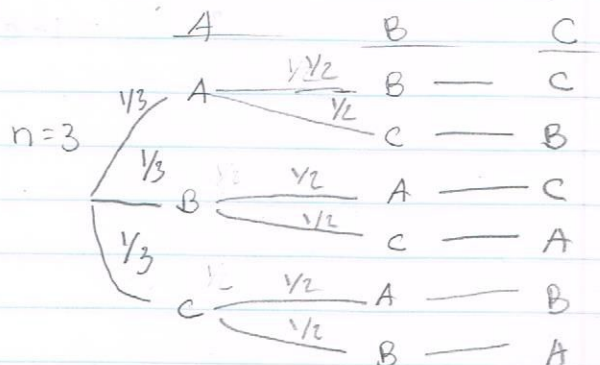 A B C
1/3 A 1/2 B C
1/2 C B
n=3
1/3 B 1/2 A C
1/2 C A
1/3 C 1/2 A B
1/2 B A